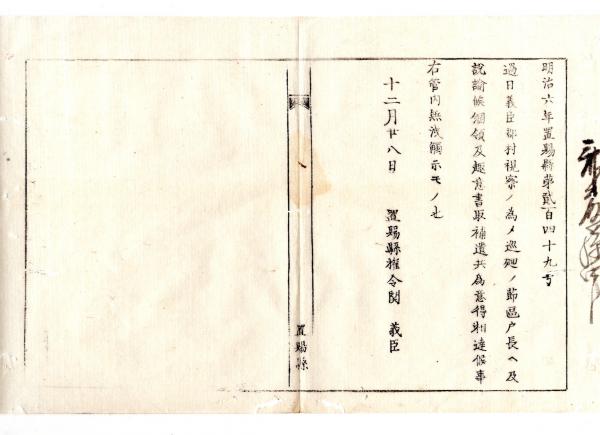 明治六年置賜縣第貳百四十九号
過日義臣郡村視察ノ為メ巡廻ノ節區戸長ヘ及
説諭候個領及趣意書取補遺共為意得相達候事
右管内無洩觸示モノ也
十二月廿八日 置賜縣権令関 義臣
置賜縣